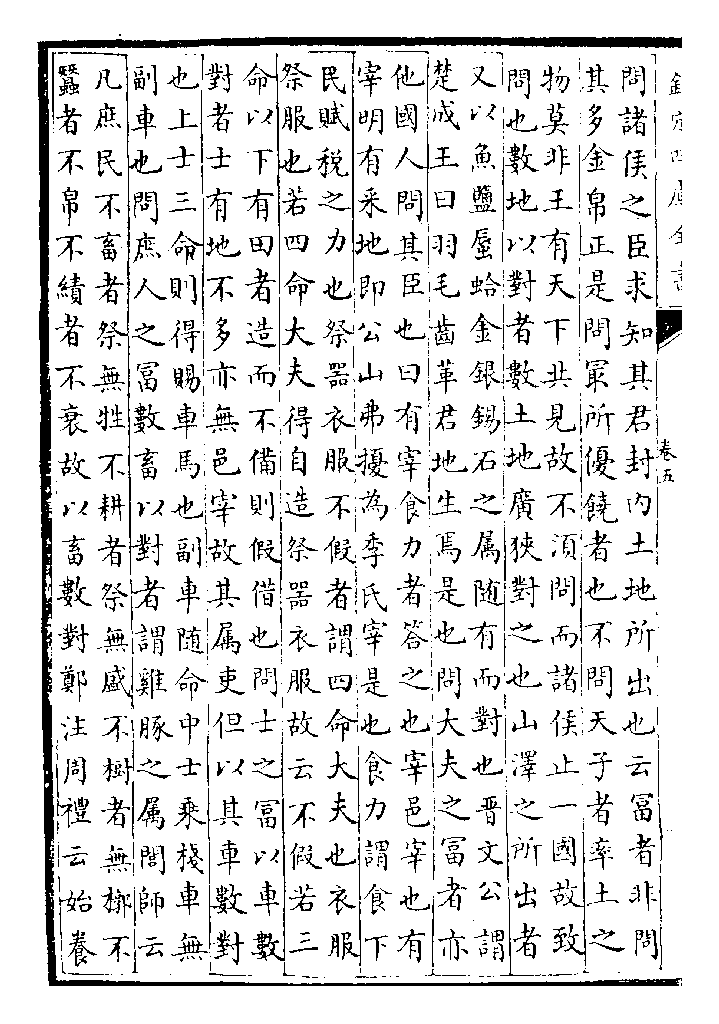 欽定四庫全書
卷五
問諸侯之臣求知其君封内土地所出也云冨者非問
其多金帛正是問冣所優饒者也不問天子者率土之
物莫非王有天下共見故不須問而諸侯止一國故致
問也數地以對者數土地廣狹對之也山澤之所出者
又以魚鹽蜃蛤金銀錫石之属随有而對也晋文公謂
楚成王曰羽毛齒革君地生焉是也問大夫之冨者亦
他國人問其臣也曰有宰食力者答之也宰邑宰也有
宰明有采地即公山弗擾為季氏宰是也食力謂食下
民賦稅之力也祭噐衣服不假者謂四命大夫也衣服
祭服也若四命大夫得自造祭噐衣服故云不假若三
命以下有田者造而不備則假借也問士之冨以車數
對者士有地不多亦無邑宰故其属吏但以其車數對
也上士三命則得賜車馬也副車随命中士乘棧車無
副車也問庶人之冨數畜以對者謂雞豚之属閭師云
凡庶民不畜者祭無牲不耕者祭無盛不樹者無槨不
蠶者不帛不績者不衰故以畜數對鄭注周禮云始養